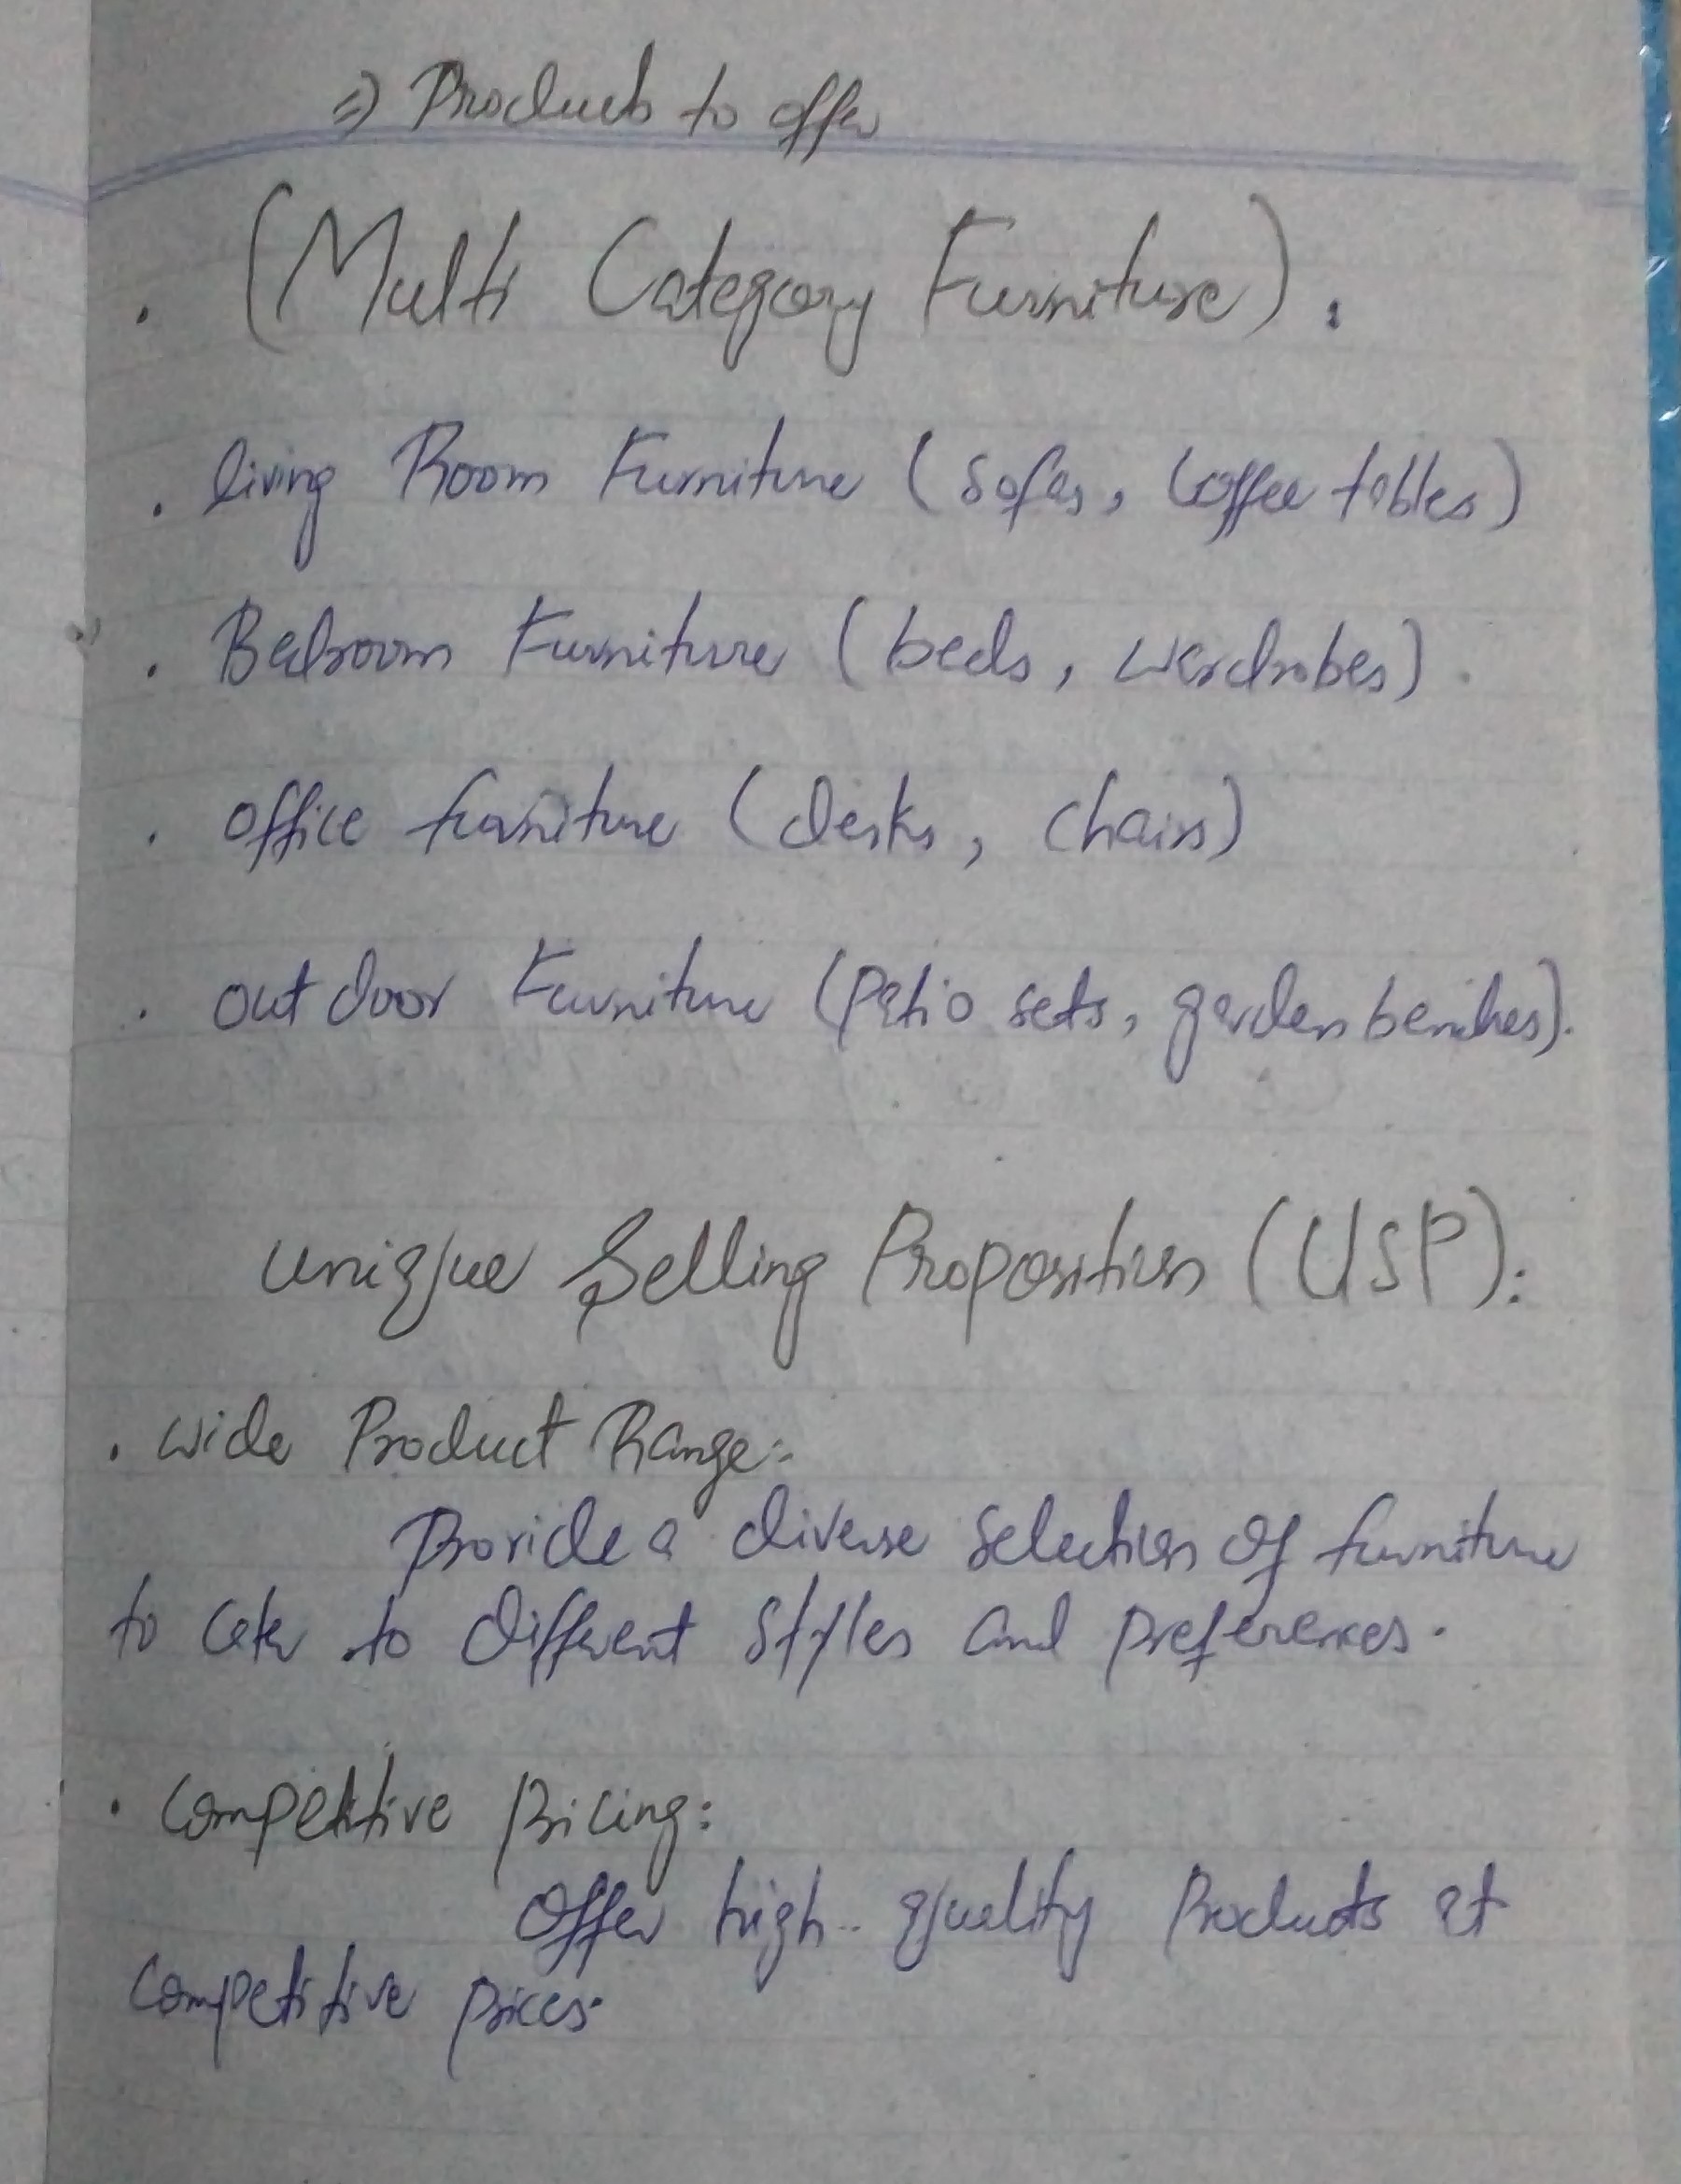 =) Products to offer
. (Multi Category Furniture) :
. living Room Furniture (Sofas, Coffee tables)
. Bedroom Furniture (beds, wardrobes).
. office furniture (desks, chairs)
. out door Furniture (Patio sets, garden benches).
unique Selling Proposition (USP):
. wide Product Range:-
Provide a diverse selection of furniture
to cater to different styles and preferences.
. Competitive pricing:
Offer high-quality Products at
Competitive prices.